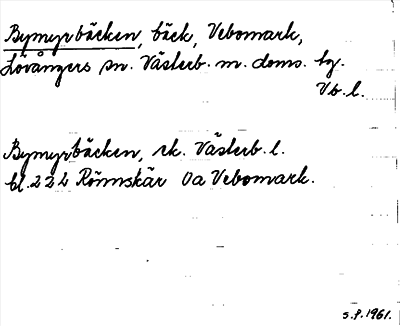 Bymyrbäcken, bäck, Vebomark,
Lövångers sn. Västerb. m. doms. hg.
Vb. l.
Bymyrbäcken, rk. Västerb. l.
bl. 22L Rönnskär 0a Vebomark.
s.f. 1961.